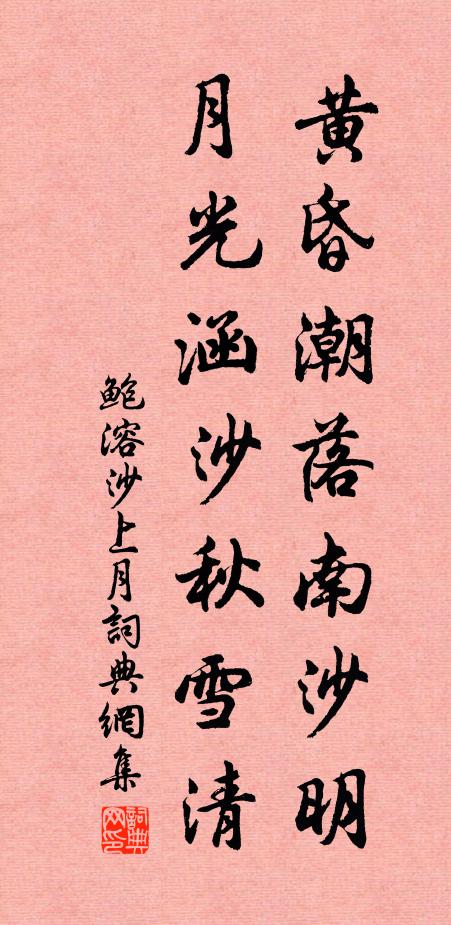 黄昏潮落南沙明
月光涵沙秋雪清
鲍溶沙上月詞典網集
詞典
网印